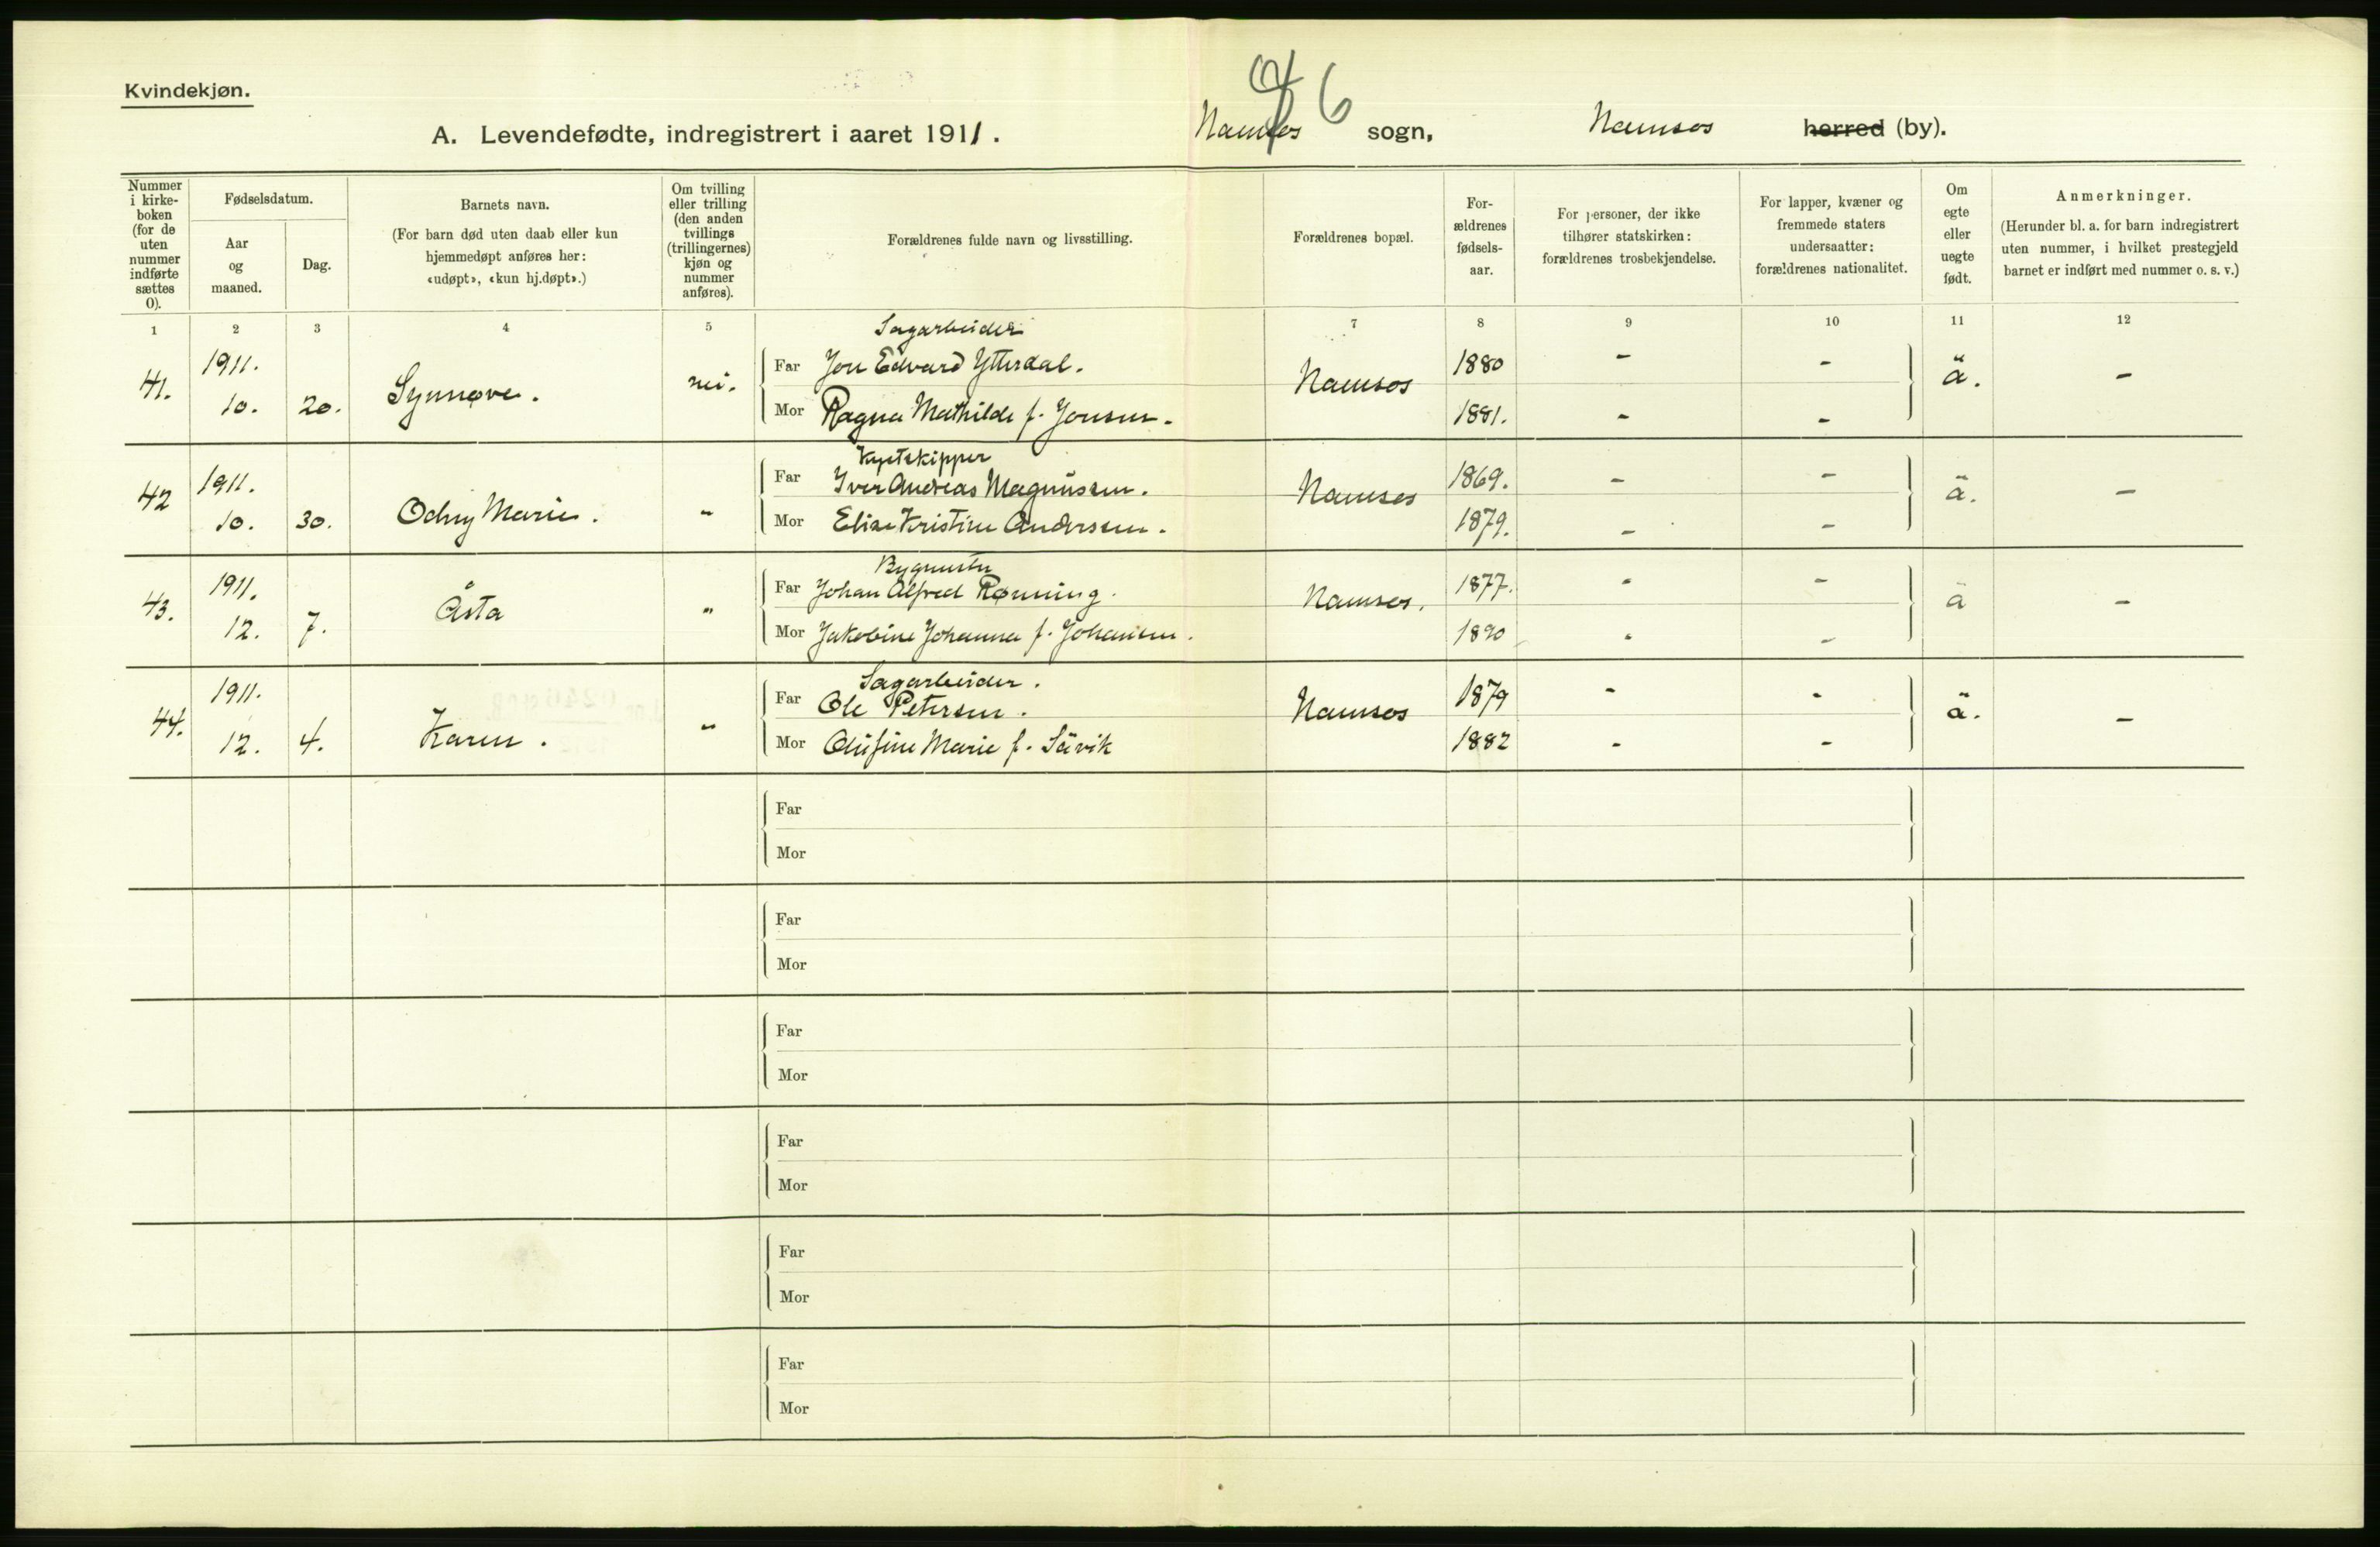 Kvindekjøn.
6
A. Levendefødte, indregistrert i aaret 1911. Namsos sogn, Namsos herred (by).
Nummer i kirke-boken (for de uten nummer indførte sættes 0).
Fødselsdatum.
Aar og maaned.
Dag.
Barnets navn.
(For barn død uten daab eller kun hjemmedøpt anføres her: «udøpt», «kun hj.døpt».)
Om tvilling eller trilling (den anden tvillings (trillingernes) kjøn og nummer anføres).
Forældrenes fulde navn og livsstilling.
Forældrenes bopæl.
For-ældrenes fødsels-aar.
For personer, der ikke tilhører statskirken: forældrenes trosbekjendelse.
For lapper, kvæner og fremmede staters undersaatter: forældrenes nationalitet.
Om egte eller uegte født.
Anmerkninger.
(Herunder bl. a. for barn indregistrert uten nummer, i hvilket prestegjeld barnet er indført med nummer o. s. v.)
1 2 3 4 5 7 8 9 10 11 12
Sagarbeider
41. 1911. 10. 20. Synnøve. nei.
Far Jon Edvard Ytterdal. Namsos 1880 - - ä. -
Mor Ragna Mathilde f. Jonsen. 1881. - -
Kystskipper
42 1911. 10. 30. Odny Marie. "
Far Iver Andreas Magnussen. Namsos 1869. - - ä. -
Mor Elise Kristine Anderssen. 1879. - -
43. 1911. 12. 7. Åsta "
Far Johan Alfred Rønning. Namsos. 1877. - - ä -
Mor Jakobine Johanna f. Johansen. - -
Sagarbeider.
44. 1911. 12. 4. Karen. "
Far Ole Petersen. Namsos 1879 - - ä. -
Mor Olufine Marie f. Sävik 1882 - -
Far
Mor
Far
Mor
Far
Mor
Far
Mor
Far
Mor
Far
Mor